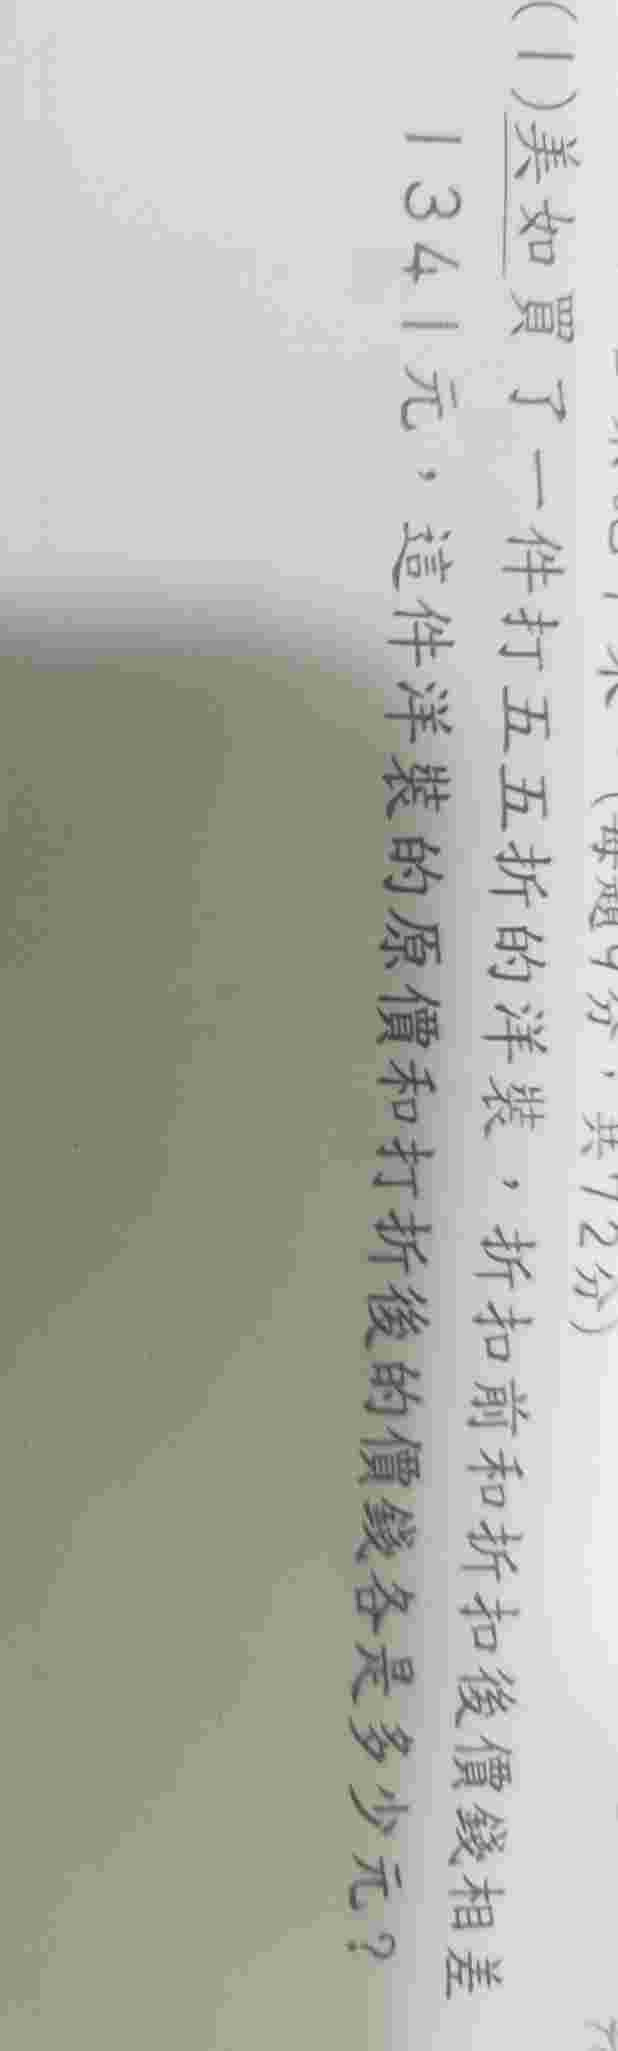 (每題9分，共72分)
(1)美如買了一件打五五折的洋裝，折扣前和折扣後價錢相差
1341元，這件洋裝的原價和打折後的價錢各是多少元？